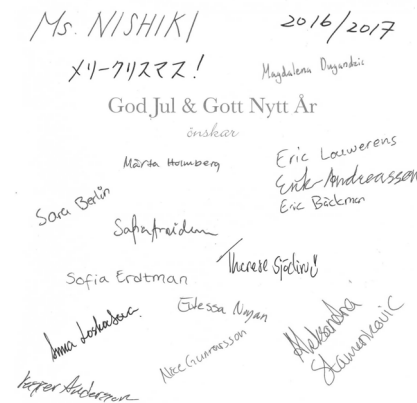 Ms. NISHIKI
2016/2017
メリークリスマス!
Magdalena Dugandzic
God Jul & Gott Nytt År
önskar
Märta Holmberg
Eric Louwerens
Erik Andreasson
Eric Bäckman
Sara Berlin
Therese Sjödin
Sofia Erdtman
Edessa Nyman
Anna
Aleksandra
Stamenkovic
Gunnarsson
Andersson